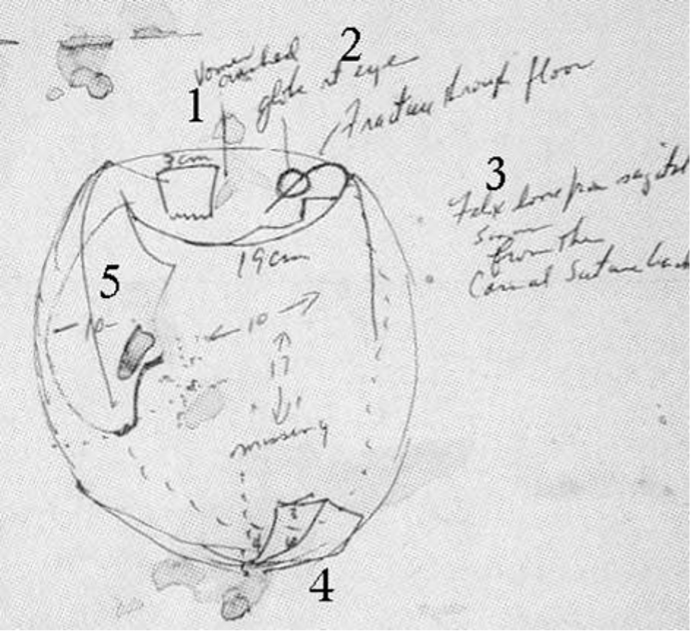 2
vomer
crushed
1
globe rt eye
Fracture through floor
3 cm
3
Falx loose from sagital
sinus
from the
Coronal suture back
19 cm
5
10
10
17
missing
4